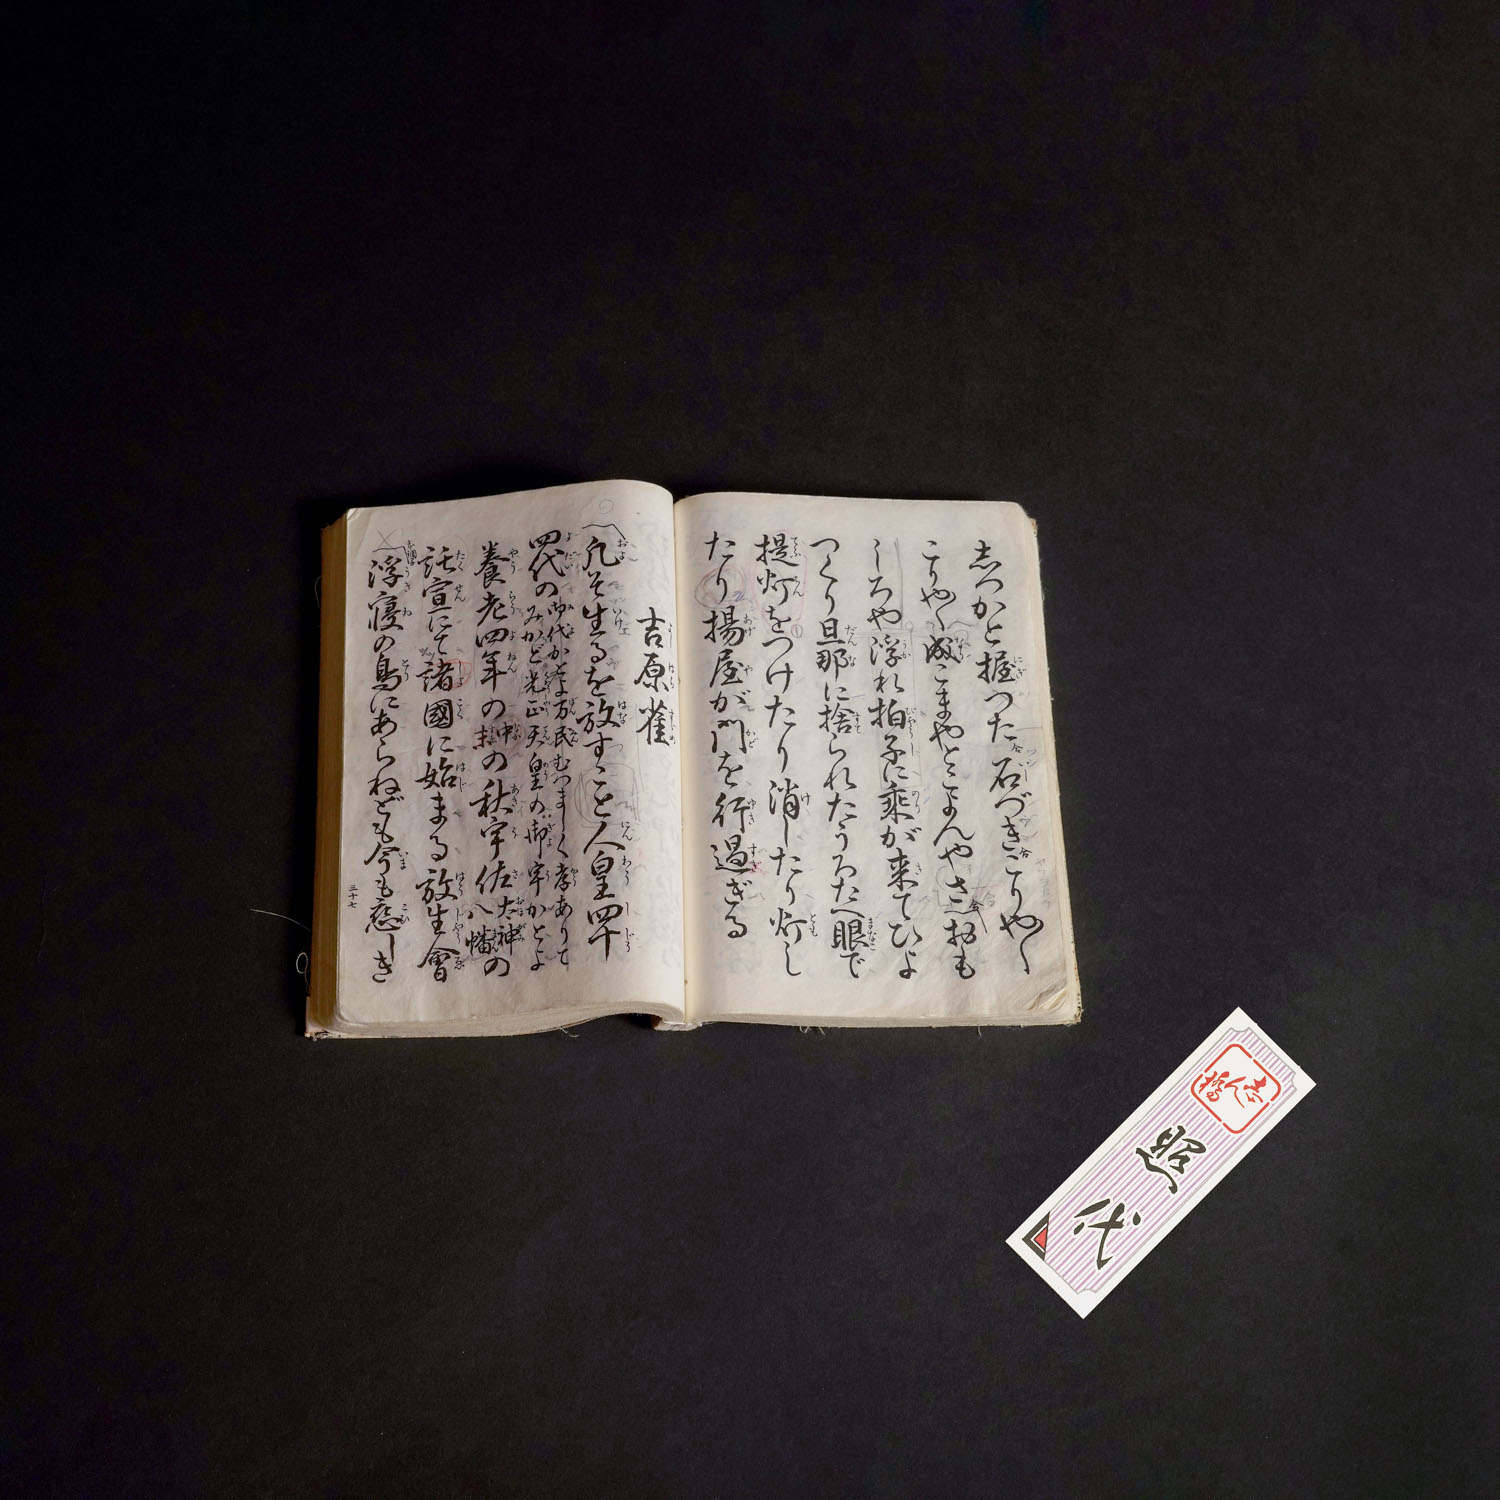 志つかと握つた石づきこりや〱
こりや〱成こまやとこよんやさおも
しろや浮れ拍子に乗が来てひよ
つくり旦那に捨られたうろたへ眼で
提灯をつけたり消したり灯し
たり揚屋が門を行過ぎる
吉原雀
凡そ生るを放すこと人皇四十
四代のみかど光正天皇の御宇かとよ
養老四年の末の秋宇佐八幡の
託宣にて諸國に始まる放生會
浮寝の鳥にあらねども今も恋しき
三十七
志ん橋
照代